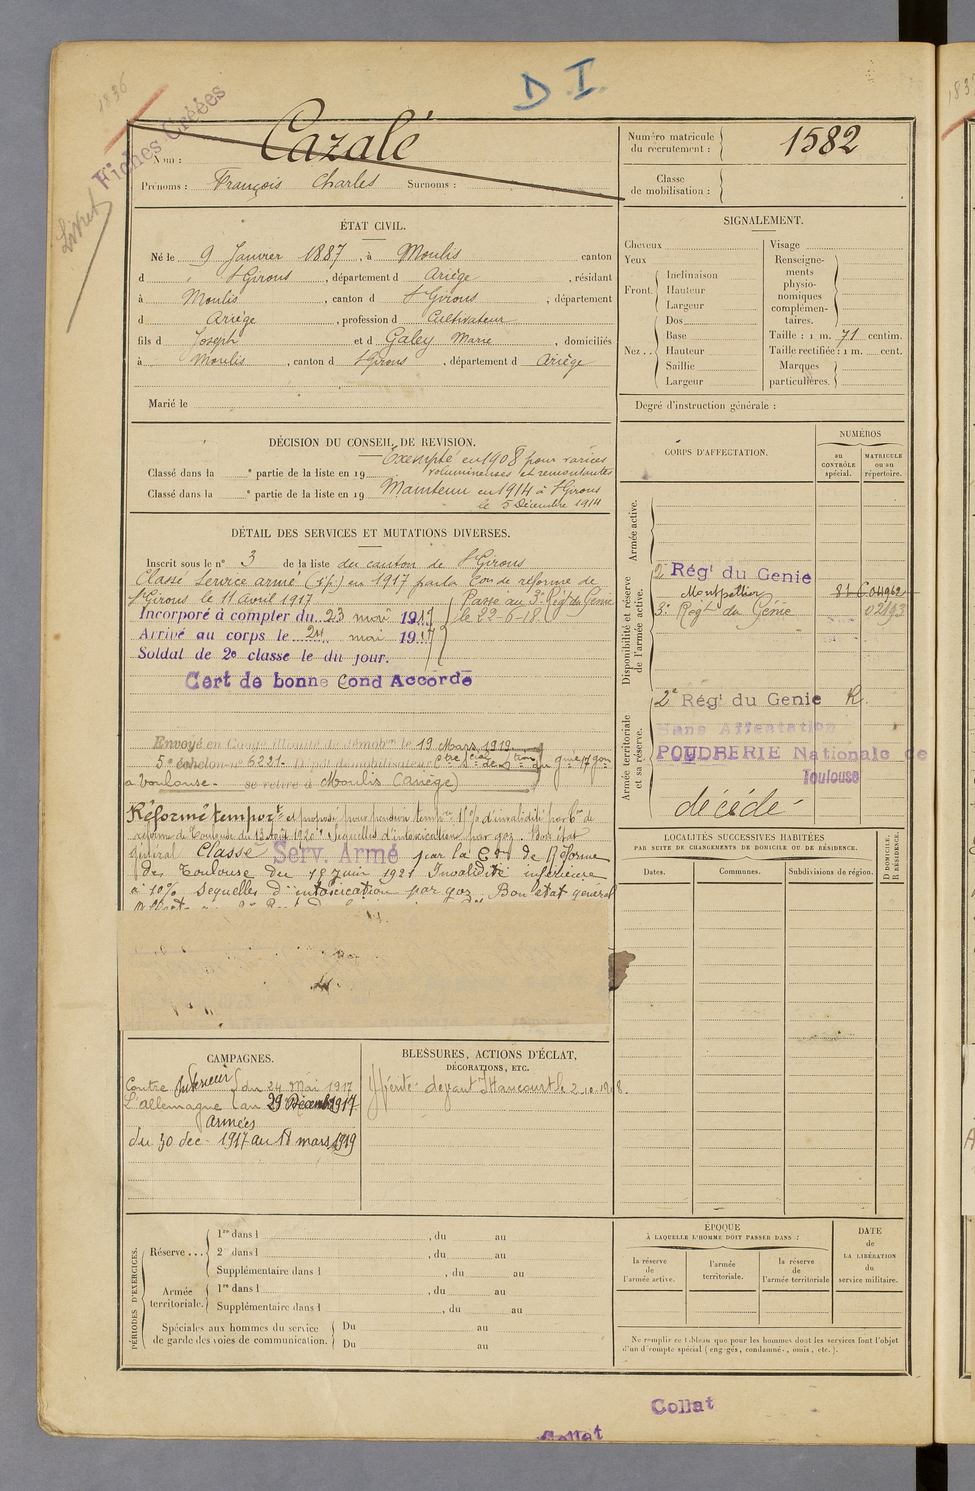 1836
D.I.
Fiches Créées
Livret
Nom : Cazalé
Prénoms : François Charles Surnoms :
Numéro matricule du recrutement : 1582
Classe de mobilisation :
ÉTAT CIVIL.
Né le 9 Janvier 1887, à Moulis canton
d St Girons, département d Ariège, résidant
à Moulis, canton d St Girons, département
d Ariège, profession d Cultivateur
fils d Joseph et d Galey Marie, domiciliés
à Moulis, canton d St Girons, département d Ariège
Marié le
SIGNALEMENT.
Cheveux
Yeux
Front. Inclinaison
Hauteur
Largeur
Nez .. Dos
Base
Hauteur
Saillie
Largeur
Visage
Renseigne-
ments
physio-
nomiques
complémen-
taires.
Taille : 1 m. 71 centim.
Taille rectifiée : 1 m. cent.
Marques
particulières.
Degré d'instruction générale :
DÉCISION DU CONSEIL DE REVISION.
Exempté en 1908 pour varices
Classé dans la e partie de la liste en 19 volumineuses et remontantes
Classé dans la e partie de la liste en 19 Maintenu en 1914 à St Girons
le 5 Décembre 1914
DÉTAIL DES SERVICES ET MUTATIONS DIVERSES.
Inscrit sous le no 3 de la liste du canton de St Girons
Classé Service armé (S.p.) en 1917 par la Con de réforme de
St Girons le 11 avril 1917
Passé au 3e Régt du Génie
le 22-6-18
Incorporé à compter du 23 mai 1917
Arrivé au corps le 24 mai 1917
Soldat de 2e classe le du jour.
Cert de bonne Cond Accordé
Envoyé en Congé illimité de démobon le 19 Mars 1919
5e échelon no 6231. Dépôt démobilisateur
à Toulouse. se retire à Moulis (Ariège)
Réformé temport et proposé pour pension tempre 15% d'invalidité par Con de
réforme de Toulouse du 13 Août 1920 "Séquelles d'intoxication par gaz. Bon état
général Classé Serv. Armé par la Con de Réforme
de Toulouse du 15 juin 1921 Invalidité inférieure
à 10% Sequelles d'intoxication par gaz. Bon état général
CORPS D'AFFECTATION.
NUMÉROS
au
CONTRÔLE
spécial.
MATRICULE
ou au
répertoire.
Armée active.
Disponibilité et réserve
de l'armée active.
2e Régt du Genie
Montpellier
3e Régt du Génie 02193
Armée territoriale
et sa réserve.
2e Régt du Genie R.
Sans Affectation
POUDRERIE Nationale de
Toulouse
décédé
LOCALITÉS SUCCESSIVES HABITÉES
PAR SUITE DE CHANGEMENTS DE DOMICILE OU DE RÉSIDENCE.
Dates. Communes. Subdivisions de région.
D DOMICILE.
R RÉSIDENCE.
CAMPAGNES.
Contre Intérieur du 24 Mai 1917
L'allemagne au 29 Décemb 1917
Armées
du 30 dec. 1917 au 18 mars 1919
BLESSURES, ACTIONS D'ÉCLAT,
DÉCORATIONS, ETC.
Ypérité devant Hancourt le 2.10.1918.
PÉRIODES D'EXERCICES.
Réserve ... 1re dans l , du au
2e dans l , du au
Supplémentaire dans l , du au
Armée territoriale. 1re dans l , du au
Supplémentaire dans l , du au
Spéciales aux hommes du service
de garde des voies de communication.
Du au
Du au
ÉPOQUE
À LAQUELLE L'HOMME DOIT PASSER DANS :
la réserve
de
l'armée active.
l'armée
territoriale.
la réserve
de
l'armée territoriale
DATE
de
LA LIBÉRATION
du
service militaire.
Ne remplir ce tableau que pour les hommes dont les services font l'objet
d'un décompte spécial (engagés, condamnés, omis, etc.).
Collat
Collat